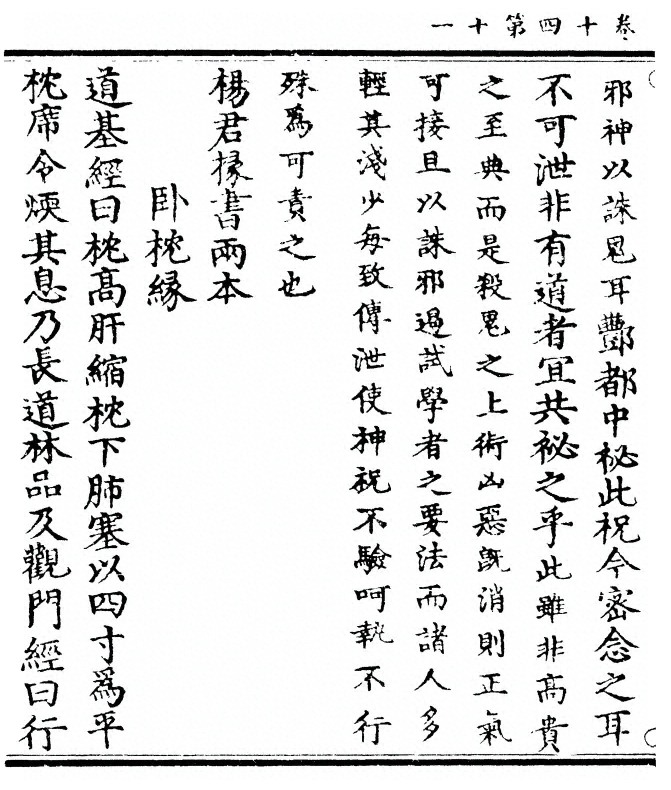 卷十四第十一
邪神以誅鬼耳酆都中祕此祝今密念之耳
不可泄非有道者宜共祕之乎此雖非高貴
之至典而是殺鬼之上術凶惡既消則正氣
可接且以誅邪過試學者之要法而諸人多
輕其淺少每致傳泄使神祝不驗呵執不行
殊為可責之也
楊君掾書兩本
卧枕緣
道基經曰枕高肝縮枕下肺塞以四寸爲平
枕席令煗其息乃長道林品及觀門經曰行